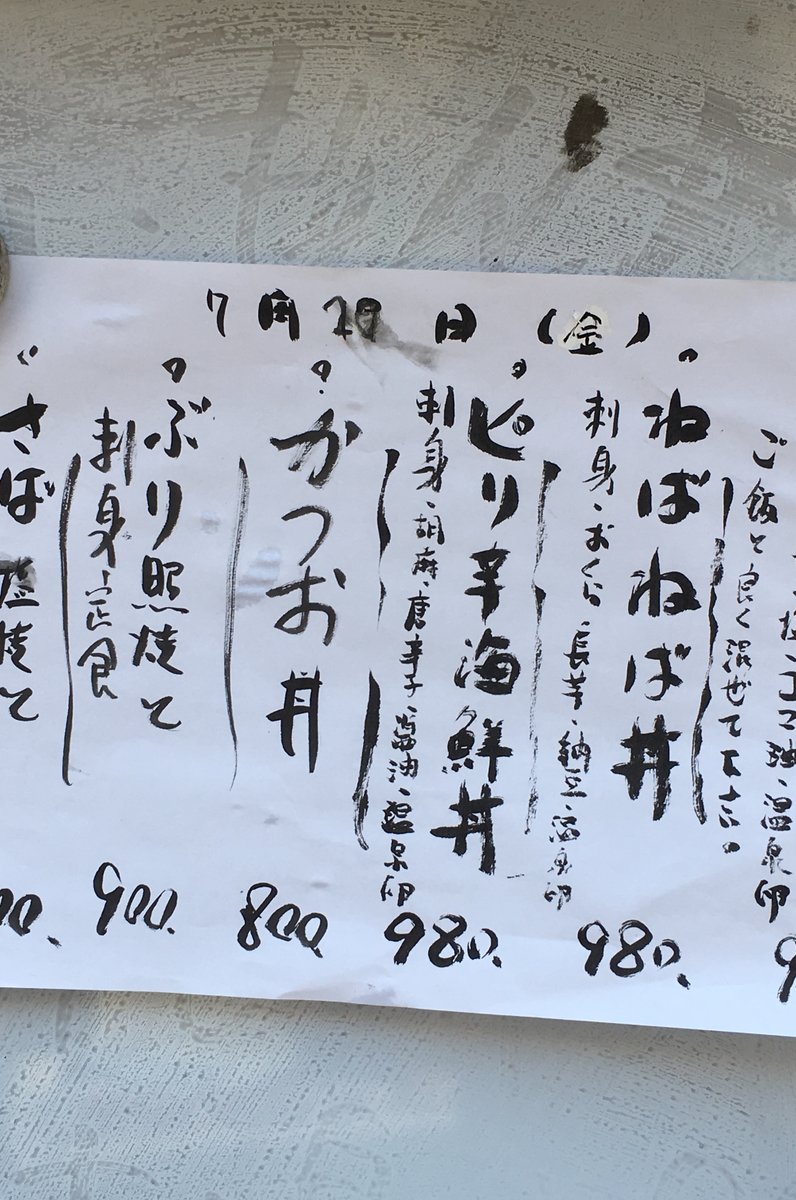 7月29日(金)
塩、ゴマ油、温泉卵
ご飯と良く混ぜて下さい。
ねばねば丼
刺身、おくら、長芋、納豆、温泉卵
980.
ピリ辛海鮮丼
刺身、胡麻、唐辛子、醤油、温泉卵
980.
かつお丼
800
ぶり照焼と
刺身定食
900.
さば塩焼と